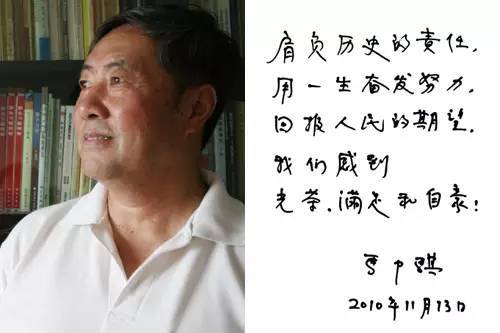 肩负历史的責任,
用一生奋发努力,
回报人民的期望,
我们感到
光荣、满足和自豪!
2010年11月13日